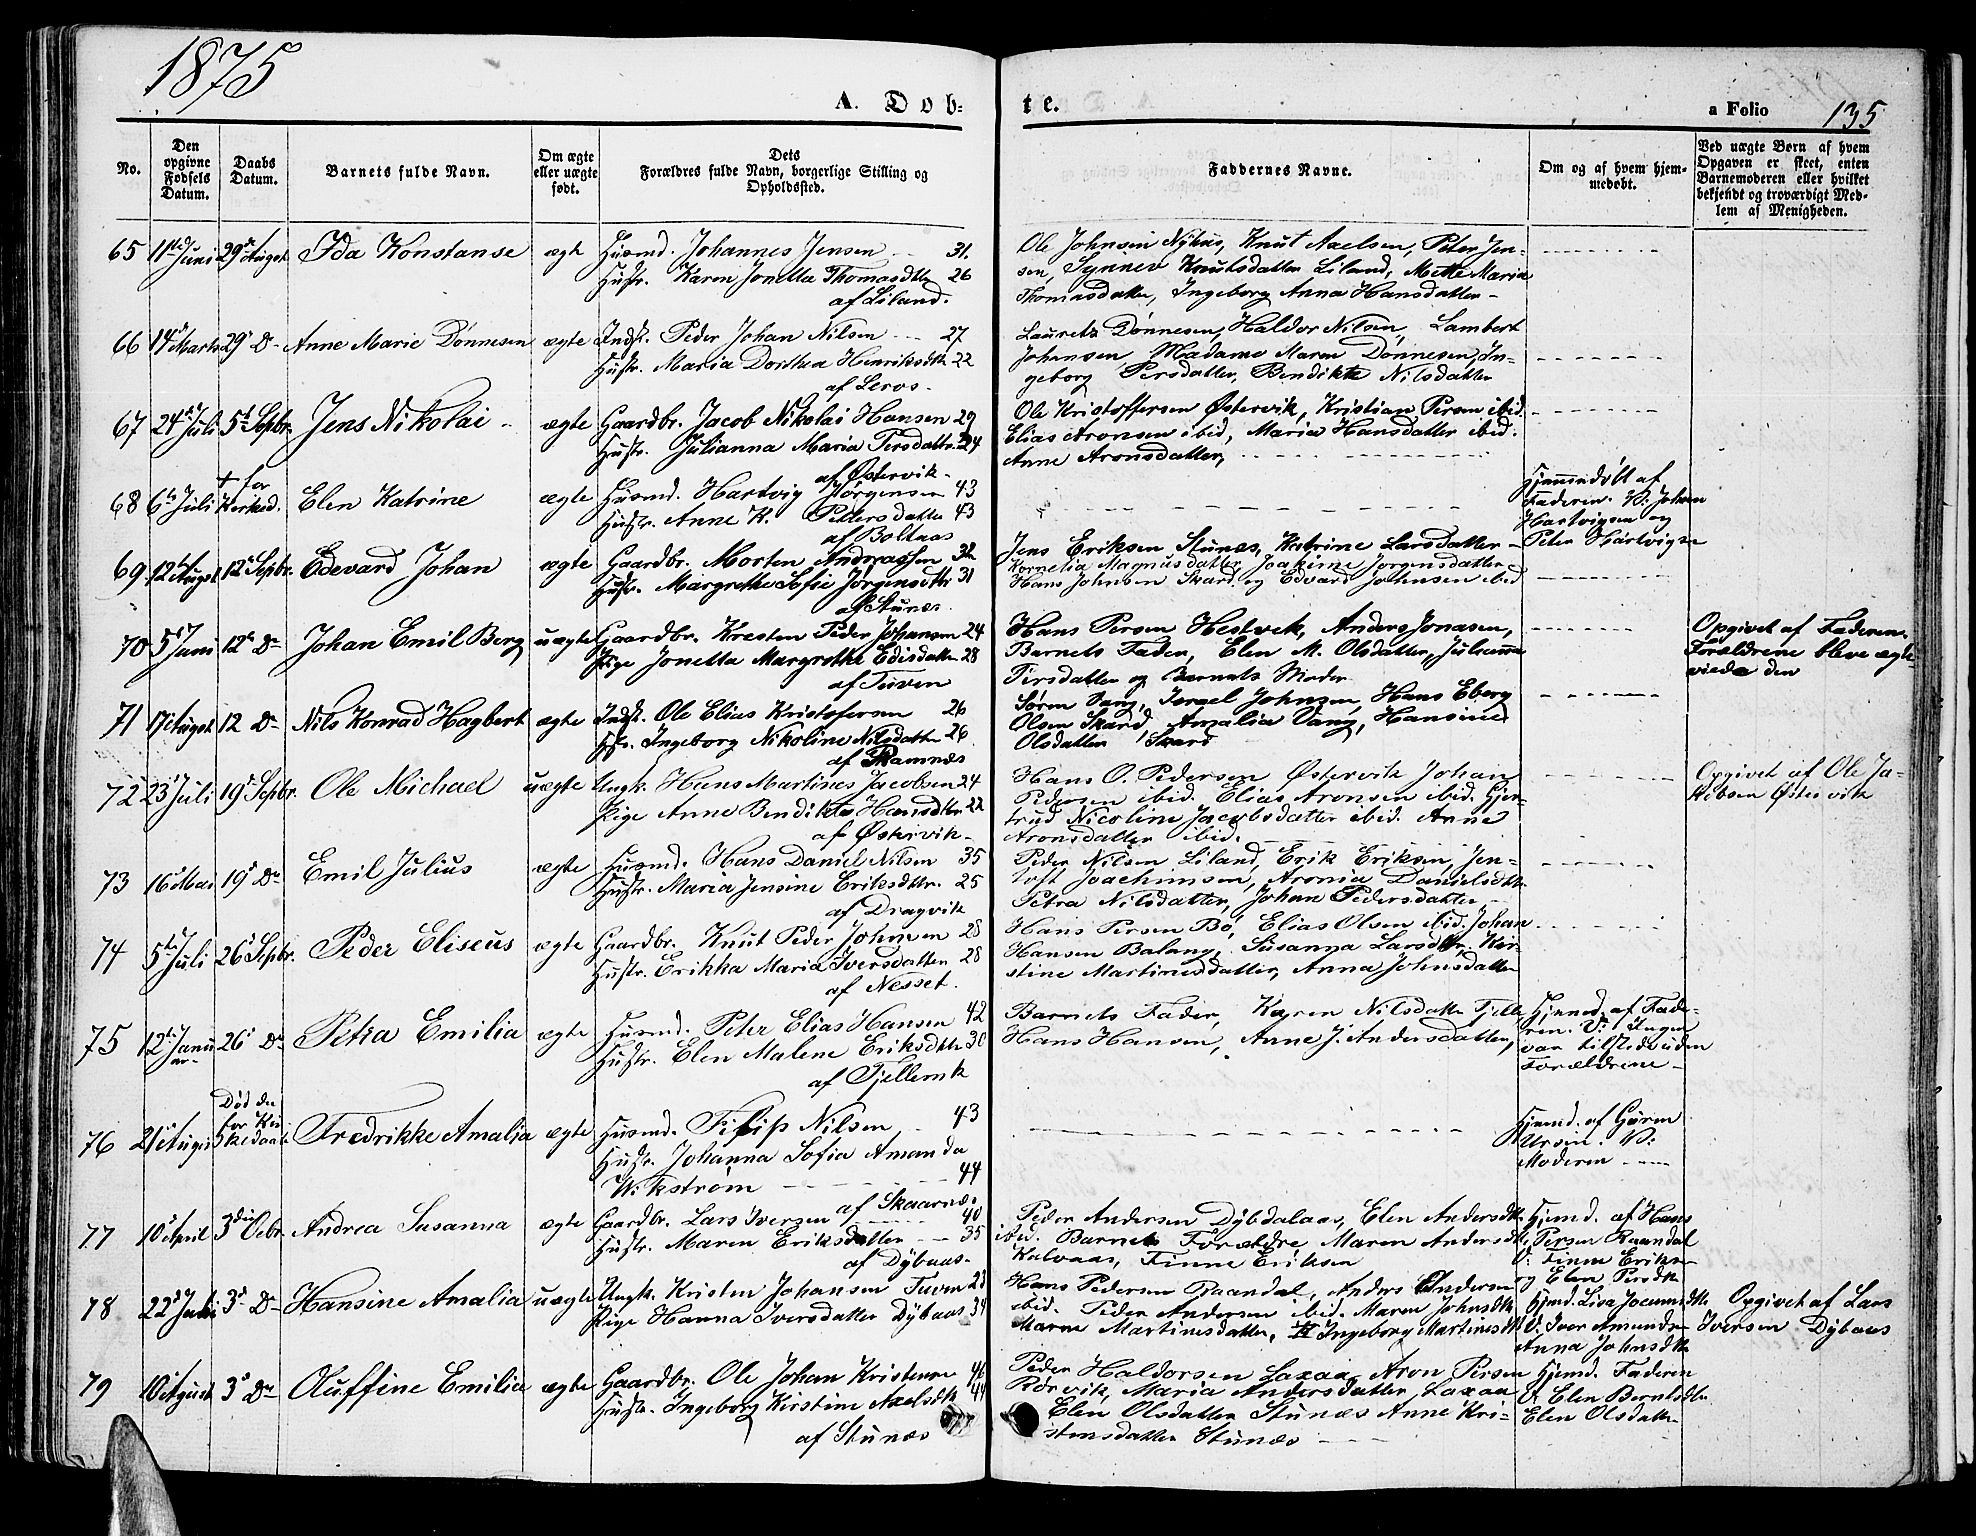 1875
A. Dob-
te.
a Folio 135
No.
Den opgivne Fødsels Datum.
Daabs Datum.
Barnets fulde Navn.
Om ægte eller uægte født.
Dets Forældres fulde Navn, borgerlige Stilling og Opholdssted.
Faddernes Navne.
Om og af hvem hjemmedøbt.
Ved uægte Børn af hvem Opgaven er skeet, enten Barnemoderen eller hvilket bekjendt og troværdigt Medlem af Menigheden.
65 11te Juni 29de August Ida Konstanse ægte Husmd. Johannes Jensen 31.
Hustr. Karen Jonetta Thomasdtter 26
af Liland.
Ole Johnsen Nyhus, Knut Axelsen, Peter Jen-
sen, Synnev Knutsdatter Liland, Mette Maria
Thomasdatter, Ingeborg Anna Hansdatter
66 14de Marts 29de Do Anne Marie Dønnesen ægte Indst. Peder Johan Nilsen 27
Hustr. Maria Dorthea Henriksdtr 22
af Leros.
Lauretz Dønnesen, Haldor Nilsen, Lambert
Johansen Madame Maren Dønnesen, In-
geborg Persdatter, Bendikte Nilsdatter
67 24de Juli 5te Sepbr. Jens Nikolai ægte Gaardbr. Jacob Nikolai Hansen 29
Hustr. Julianna Maria Persdattr. 24
af Østervik
Ole Kristoffersen Østervik, Kristian Persen ibid.
Elias Aronsen ibid, Maria Hansdatter ibid.
Anne Aronsdatter,
68 6te Juli + før Kirked. Elen Katrine ægte Husmd. Hartvig Jørgensen 43
Hustr. Anne K. Pettersdatter 43
af Boltaas
Hjemmedøbt af
Faderen. V. Johan
Hartvigsen og
Peter Hartvigsen
69 12te August 12te Sepbr. Edevard Johan ægte Gaardbr. Morten Andreassen 32
Hustr. Margrethe Sofie Jørgensdttr 31
af Stunes.
Jens Eriksen Stunes, Katrine Larsdatter
Kornelia Magnusdatter Joakime Jørgensdatter
Hans Johnsen Skard og Edvard Johnsen ibid
70 5te Juni 12te Do Johan Emil Berg uægte Gaardbr. Kresten Peder Johansen 24
Pige Jonetta Margrethe Edisdatter 28
af Tuven
Hans Persen Hestvik, Anders Jonasen,
Barnets Fader, Elen M. Olsdatter, Julianna
Persdatter og Barnets Moder
Opgivet af Faderen.
Forældrene bleve ægte-
viede den
71 17de August 12 Do Nils Konrad Hagbert ægte Indst. Ole Elias Kristofersen 26
Hstr. Ingeborg Nikoline Nilsdatter 26
af Ramnæs
Søren Vang, Israel Johnsen, Hans Eberg
Olsen Skard, Amalia Vang, Hansine
Olsdatter Skard
72 23de Juli 19de Sepbr. Ole Michael uægte Ungk. Hans Martines Jacobsen 24
Pige Anne Bendikte Hansdttr 22
af Østervik
Hans O. Pedersen Østervik Johan
Pedersen ibid. Elias Aronsen ibid. Gjer-
trud Nicoline Jacobsdatter ibid. Anne
Aronsdatter ibid.
Opgivet af Ole Ja-
kobsen Østervik
73 16de Mai 19de Do Emil Julius ægte Husmd. Hans Daniel Nilsen 35
Hustr. Maria Jensine Eriksdttr. 25
af Dragvik
Peder Nilsen Liland, Erik Eriksen, Jen-
toft Joachimsen, Aronia Danielsdtr.
Petra Nilsdatter, Johan Pedersdatter
74 5te Juli 26de Sepbr. Peder Eliseus ægte Gaardbr. Knut Peder Johnsen 28
Hustr. Erikka Maria Iversdatter 28
af Nesset.
Hans Persen Bø, Elias Olsen ibid. Johan
Hansen Balang, Susanna Larsdtr. Kir-
stine Martinusdatter, Anna Johnsdatter
75 12te Januar 26de Do Petra Emilia ægte Husmd. Peter Elias Hansen 42
Hustr. Elen Malene Eriksdttr 30
af Fjellemk
Barnets Fader, Karen Nilsdatter Fjelle
Hans Hansen, Anne J. Andersdatter,
Hjmed. af Fade-
ren. V. Ingen
var tilstede uden
Forældrene
76 21de August Død den før Kirkedaab Fredrikke Amalia ægte Husmd. Filip Nilsen 43
Hustr. Johanna Sofia Amanda
Wikstrøm 44
af Skaarnes
Hjemd. af Gøren
Ursin. V.
Moderen
77 10de April 3die Octbr. Andrea Susanna ægte Gaardbr. Lars Iversen 40
Hustr. Maren Eriksdatter 35
af Dybaas.
Peder Andersen Dybdalaas, Elen Andersdtr.
ibid. Barnets Forældre Maren Andersdtr.
Kalvaas, Finne Eriksen
Hjemd. af Hans
Persen Raandal
V. Finne Eriksen
og Elen Persdtr
78 22de Juli 3die Do Hansine Amalia uægte Ungk. Kristen Johansen Tuven 23
Pige Hanna Iversdatter Dybaas 34
Hans Pedersen Raandal, Anders Andersen
ibid. Peder Andersen ibid. Maren Johnsdtr
Marne Martinesdatter, Ingeborg Martinesdtr
Hjemd. Lisa Joenmsdtr
V. Iver Amundsen
Anna Johnsdtr
Opgivet af Lars
Iversen Dybaas
79 10de August 3die Do Oluffine Emilia ægte Gaardbr. Ole Johan Kristensen 46
Hustr. Ingeborg Kirstine Axelsdtr 44
af Stunæs
Peder Haldorsen Laxaa, Aron Persen
Rørvik, Maria Andersdatter, Laxaa
Elen Olsdatter Stunæs Anne Kri-
stensdatter Stunæs
Hjemd. Faderen
V. Elen Berntsdtr.
Elen Olsdatter